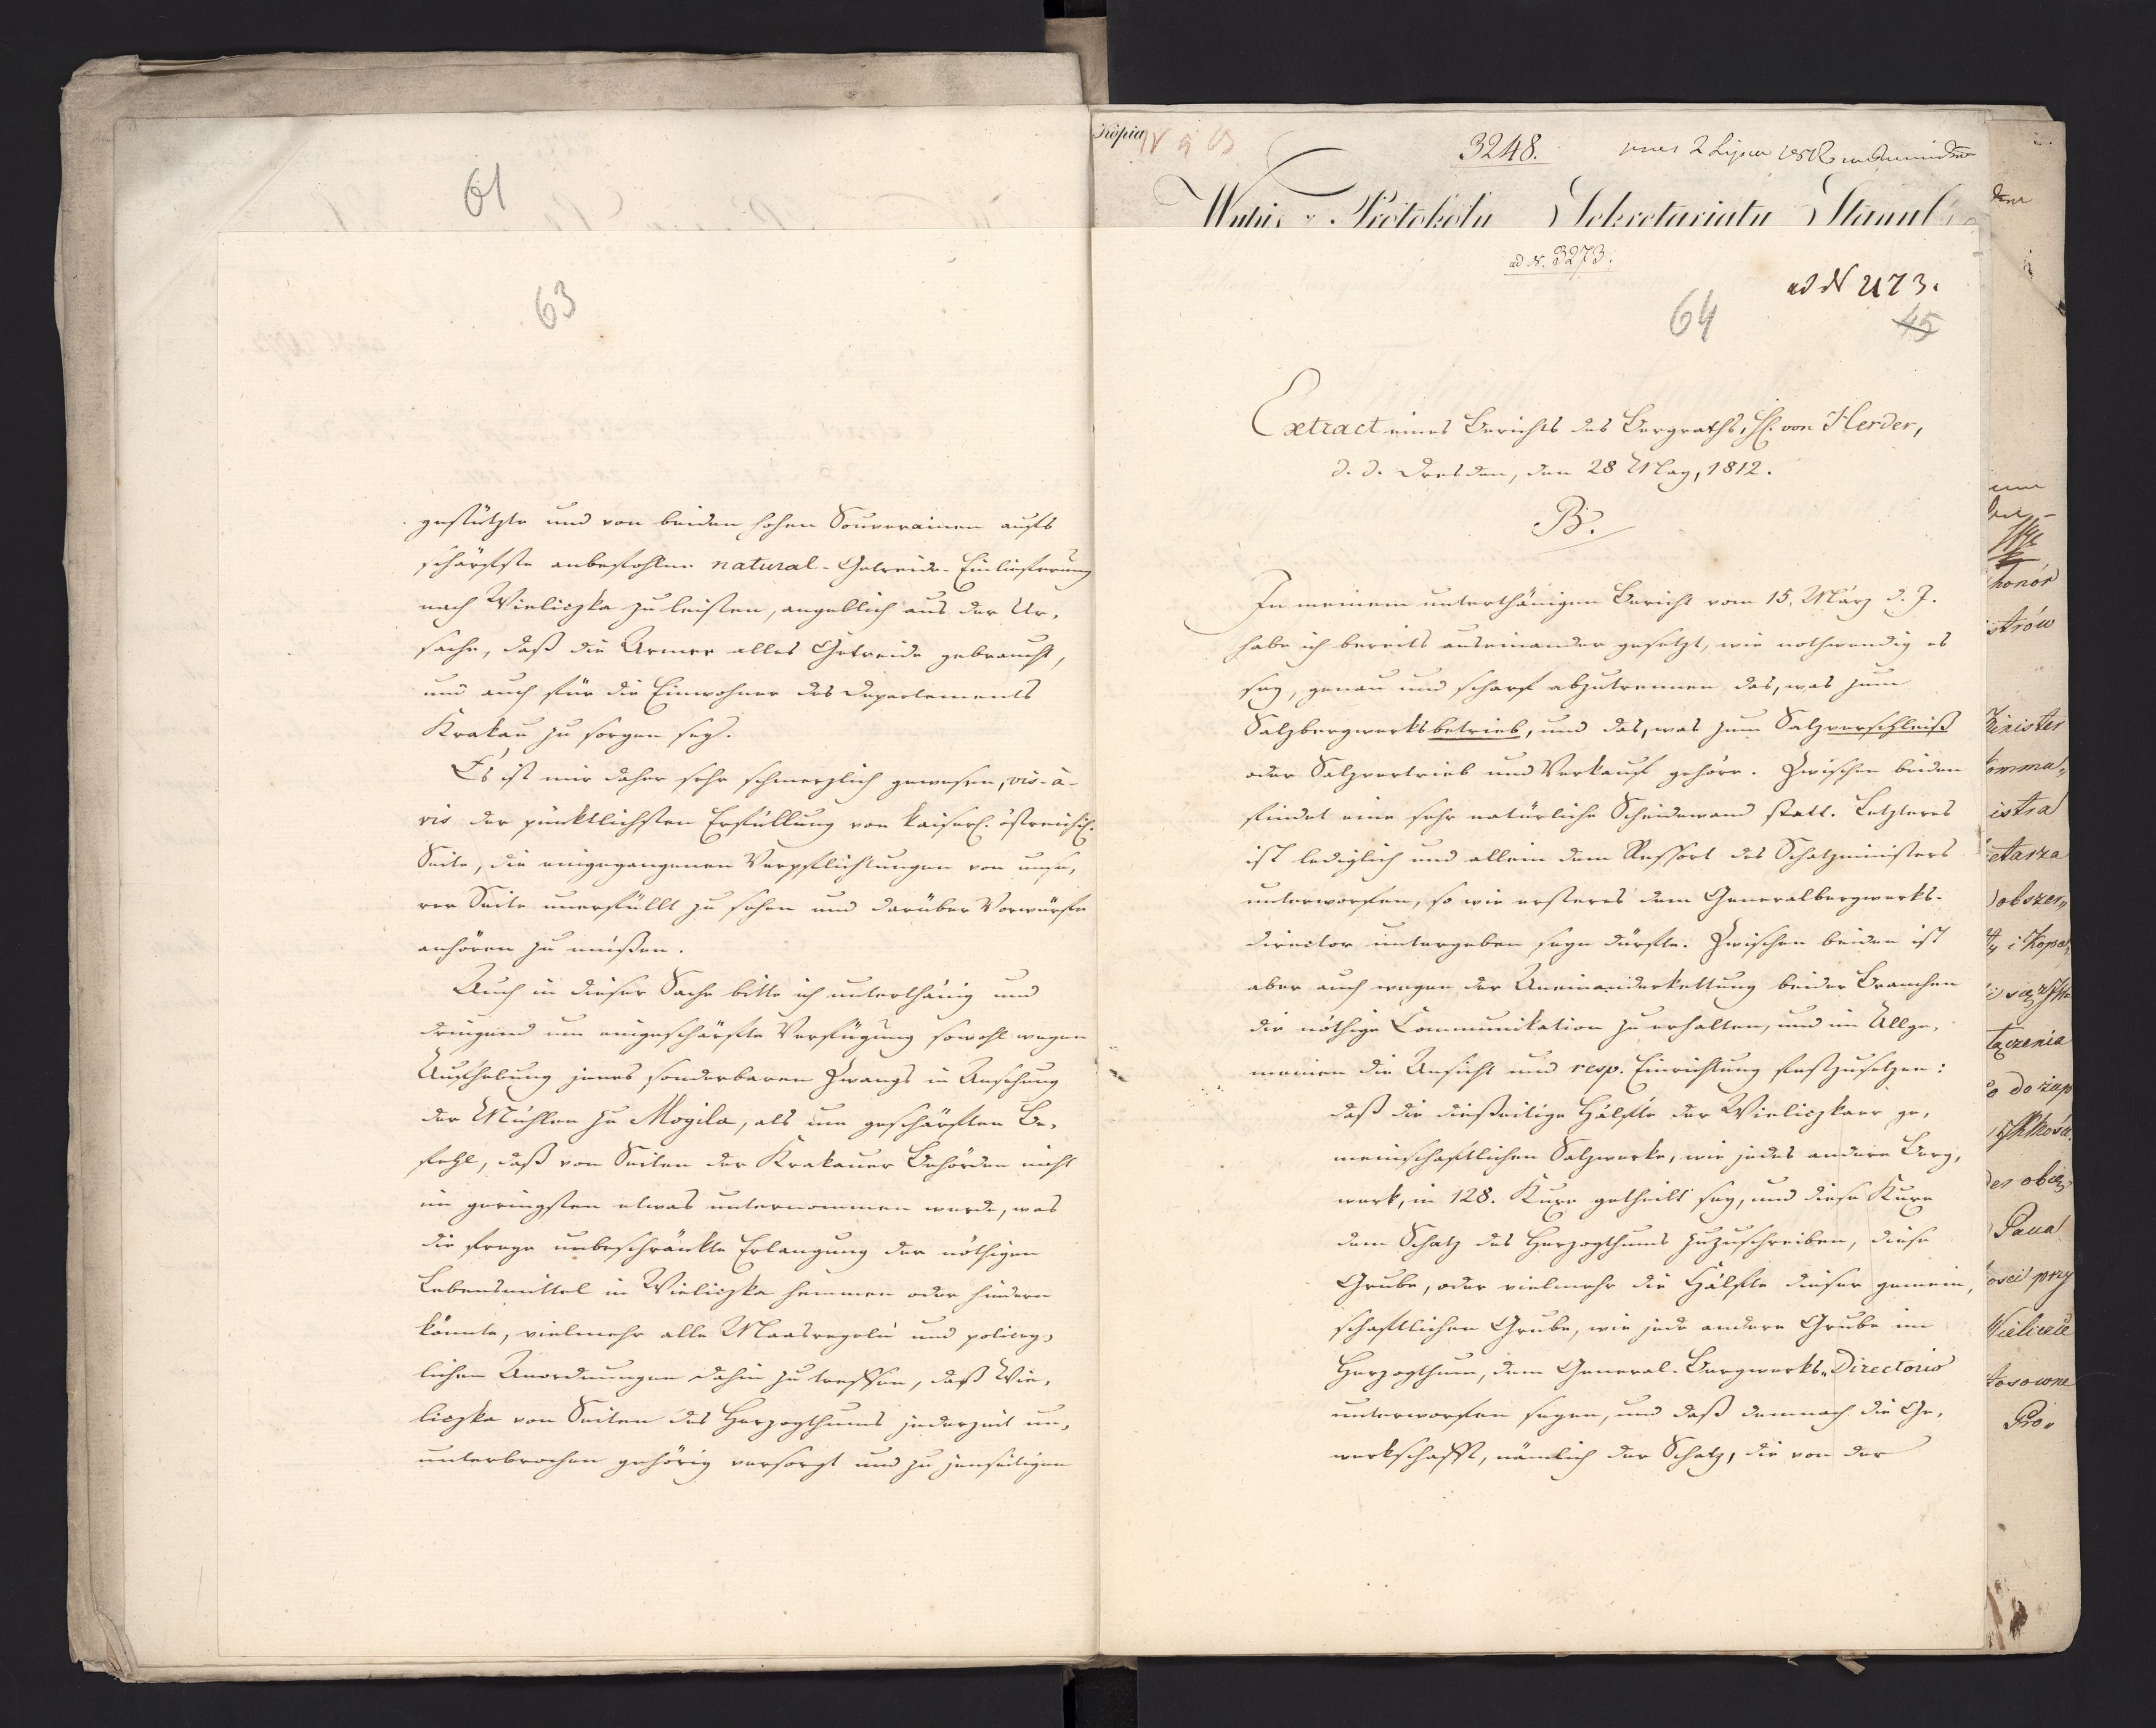 61
63
gestützte und von beiden hohen Souverainen aufs
schärfste anbefohlne natural-Getreide-Einlieferung
nach Wieliczka zu leisten, angeblich aus der Ur,
sache, daß die Armee alles Getreide gebraucht,
und auch für die Einwohner des Departements
Krakau zu sorgen sey.
Es ist mir daher sehr schmerzlich gewesen, vis-à-
vis der pünktlichsten Erfüllung von kaiserl. östreichisch.
Seite, die eingegangenen Verpflichtungen von unse,
rer Seite unerfüllt zu sehen und darüber Vorwürfe
anhören zu müßen.
Auch in dieser Sache bitte ich unterthänig und
dringend um eingeschärfte Verfügung sowohl wegen
Aufhebung jenes sonderbaren Zwangs in Ansehung
der Mühlen zu Mogila, als um geschärften Be,
fehl, daß von Seiten der Krakauer Behörden nicht
im geringsten etwas unternommen werde, was
die freye unbeschränkte Erlangung der nöthigen
Lebensmittel in Wieliczka hemmen oder hindern
könnte, vielmehr alle Maasregeln und policey,
lichen Anordnungen dahin zu treffen, daß Wie,
liczka von Seiten des Herzogthums jederzeit un,
unterbrochen gehörig versorgt und zu jenseitigen
Kopia
3248.
2 Lipca 1812
Protokołu Sekretariatu Stanu
ad N. 3273.
ad N 2173.
64
45
Extract eines Berichts des Bergraths, H. von Herder,
d. d. Dresden, den 28 May, 1812.
B.
In meinem unterthänigen Bericht vom 15. März d. J.
habe ich bereits auseinander gesetzt, wie nothwendig es
sey, genau und scharf abzutrennen das, was zum
Salzbergwerksbetrieb, und das, was zum Salzverschleiß
oder Salzvertrieb und Verkauf gehöre. Zwischen beiden
findet eine sehr natürliche Scheidewand statt. Letzteres
ist lediglich und allein dem Ressort des Schatzministers
unterworfen, so wie ersteres dem Generalbergwerks-
director untergeben seyn dürfte. Zwischen beiden ist
aber auch wegen der Aneinanderkettung beider Branchen
die nöthige Communikation zu erhalten, und im Allge,
meinen die Ansicht und resp. Einrichtung festzusetzen:
daß die dießeitige Hälfte der Wieliczkaer ge,
meinschaftlichen Salzwerke, wie jedes andere Berg,
werk, in 128. Kuxe getheilt sey, und diese Kuxe
dem Schatz des Herzogthums zuzuschreiben, diese
Grube, oder vielmehr die Hälfte dieser gemein,
schaftlichen Grube, wie jede andere Grube im
Herzogthum, dem General-Bergwerks-Directorio
unterworfen seyen, und daß demnach die Ge,
werkschafft, nämlich der Schatz, die von der